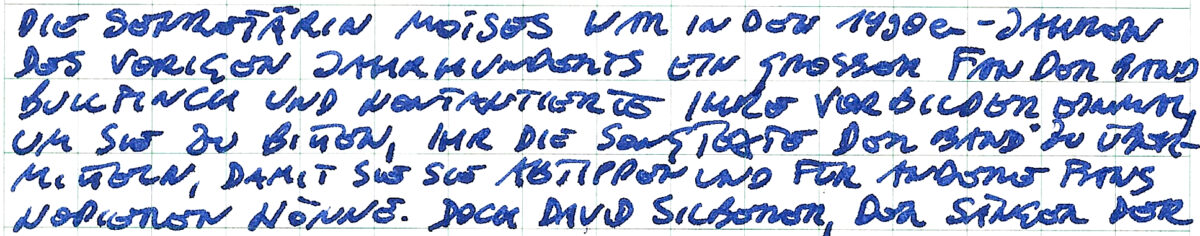 DIE SEKRETÄRIN MOISES WAR IN DEN 1990er-JAHREN
DES VORIGEN JAHRHUNDERTS EIN GROSSER FAN DER BAND
BULLFINCH UND KONTAKTIERTE IHRE VORBILDER EINMAL,
UM SIE ZU BITTEN, IHR DIE SONGTEXTE DER BAND ZU ÜBER-
MITTELN, DAMIT SIE SIE ABTIPPEN UND FÜR ANDERE FANS
KOPIEREN KÖNNE. DOCH DAVID SILBERER, DER SÄNGER DER